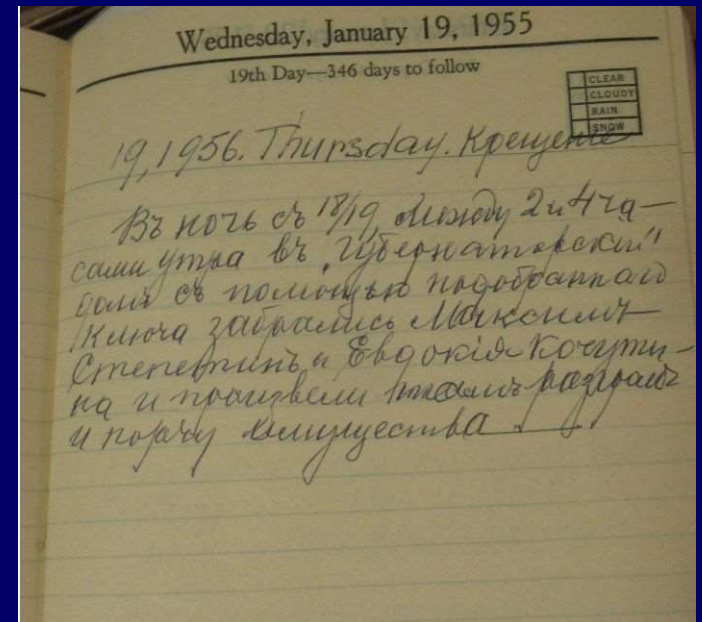 Wednesday, January 19, 1955
19th Day—346 days to follow
CLEAR
CLOUDY
RAIN
SNOW
19, 1956. Thursday. Крещение
Въ ночь съ 18/19, между 2 и 4 ча-
сами утра въ „Губернаторскій"
домъ съ помощью подобраннаго
ключа забрались Максимъ
Степетинъ и Евдокія Кочути-
на и произвели тамъ разгромъ
и порчу имущества.